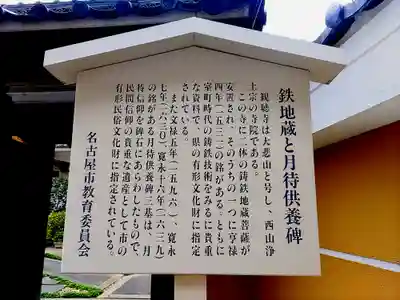 鉄地蔵と月待供養碑
観聴寺は大悲山と号し、西山浄
土宗の寺院である。
この寺に二体の鋳鉄地蔵菩薩が
安置され、そのうちの一つに享禄
四年(一五三一)の銘がある。ともに
室町時代の鋳鉄技術をみるに貴重
な資料で、県の有形文化財に指定
されている。
また文禄五年(一五九六)、寛永
七年(一六三〇)、寛永十六年(一六三九)
の銘がある月待供養碑三基は、月
待信仰を碑石にあらわしたもので、
民間信仰の貴重な遺産として市の
有形民俗文化財に指定されている。
名古屋市教育委員会